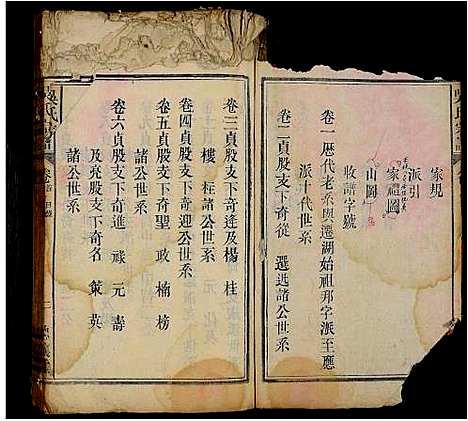 家規
派引
家祖圖
山圖
收譜字號
卷一歷代老系與遷湖始祖邦字派至應
派十代世系
卷二貞股支下奇從 選迯諸公世系
卷三貞股支下奇逵及楊 柱
樓 枉諸公世系
卷四貞股支下奇迎公世系
卷五貞股支下奇聖 政 楠 榜
諸公世系
卷六貞股支下奇進 禄 元 壽
及堯股支下奇名 策 英
諸公世系
吳氏宗譜